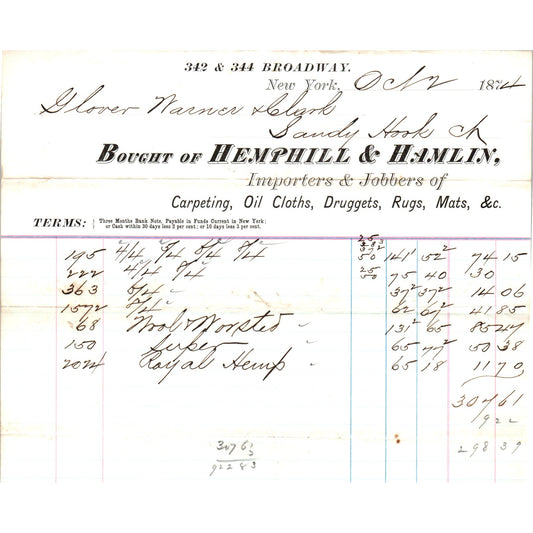 342 & 344 BROADWAY.
New York, Oct 2 1874
Glover Warner & Clark
Sandy Hook Ct
BOUGHT OF HEMPHILL & HAMLIN,
Importers & Jobbers of
Carpeting, Oil Cloths, Druggets, Rugs, Mats, &c.
TERMS: { Three Months Bank Note, Payable in Funds Current in New York;
or Cash within 30 days less 2 per cent; or 10 days less 3 per cent.
195 4/4 5/4 6/4 8/4 50 141 52² 74 15
222 4/4 8/4 25 50 75 40 30
363 5/4 " 37² 37² 14 06
157² 6/4 62 67² 41 85
68 Wool & Worsted " 131² 65 85 47
150 Super " 65 77² 50 38
2024 Royal Hemp " 65 18 11 70
307 61
9 22
298 39
307 61
3
9 22 83